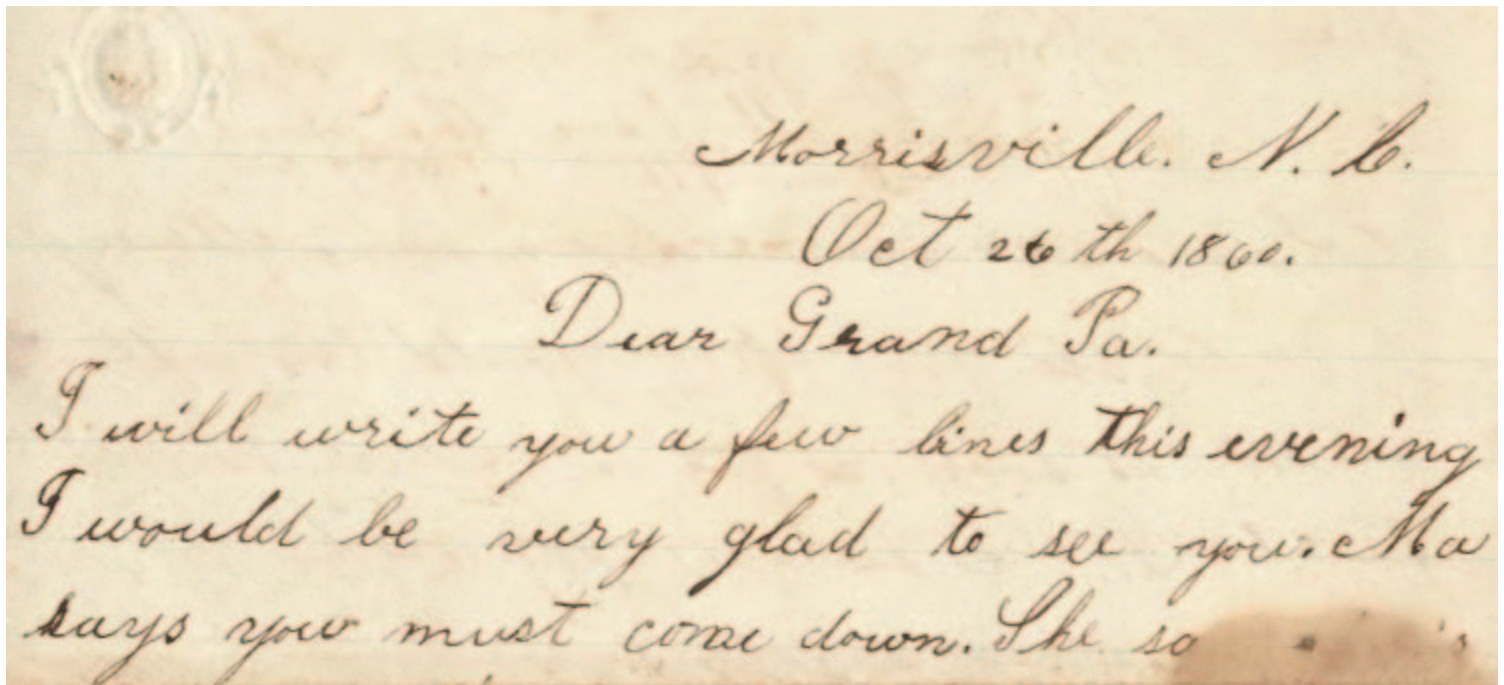 Morrisville. N. C.
Oct 26 th 1860.
Dear Grand Pa.
I will write you a few lines this evening
I would be very glad to see you. Ma
says you must come down. She